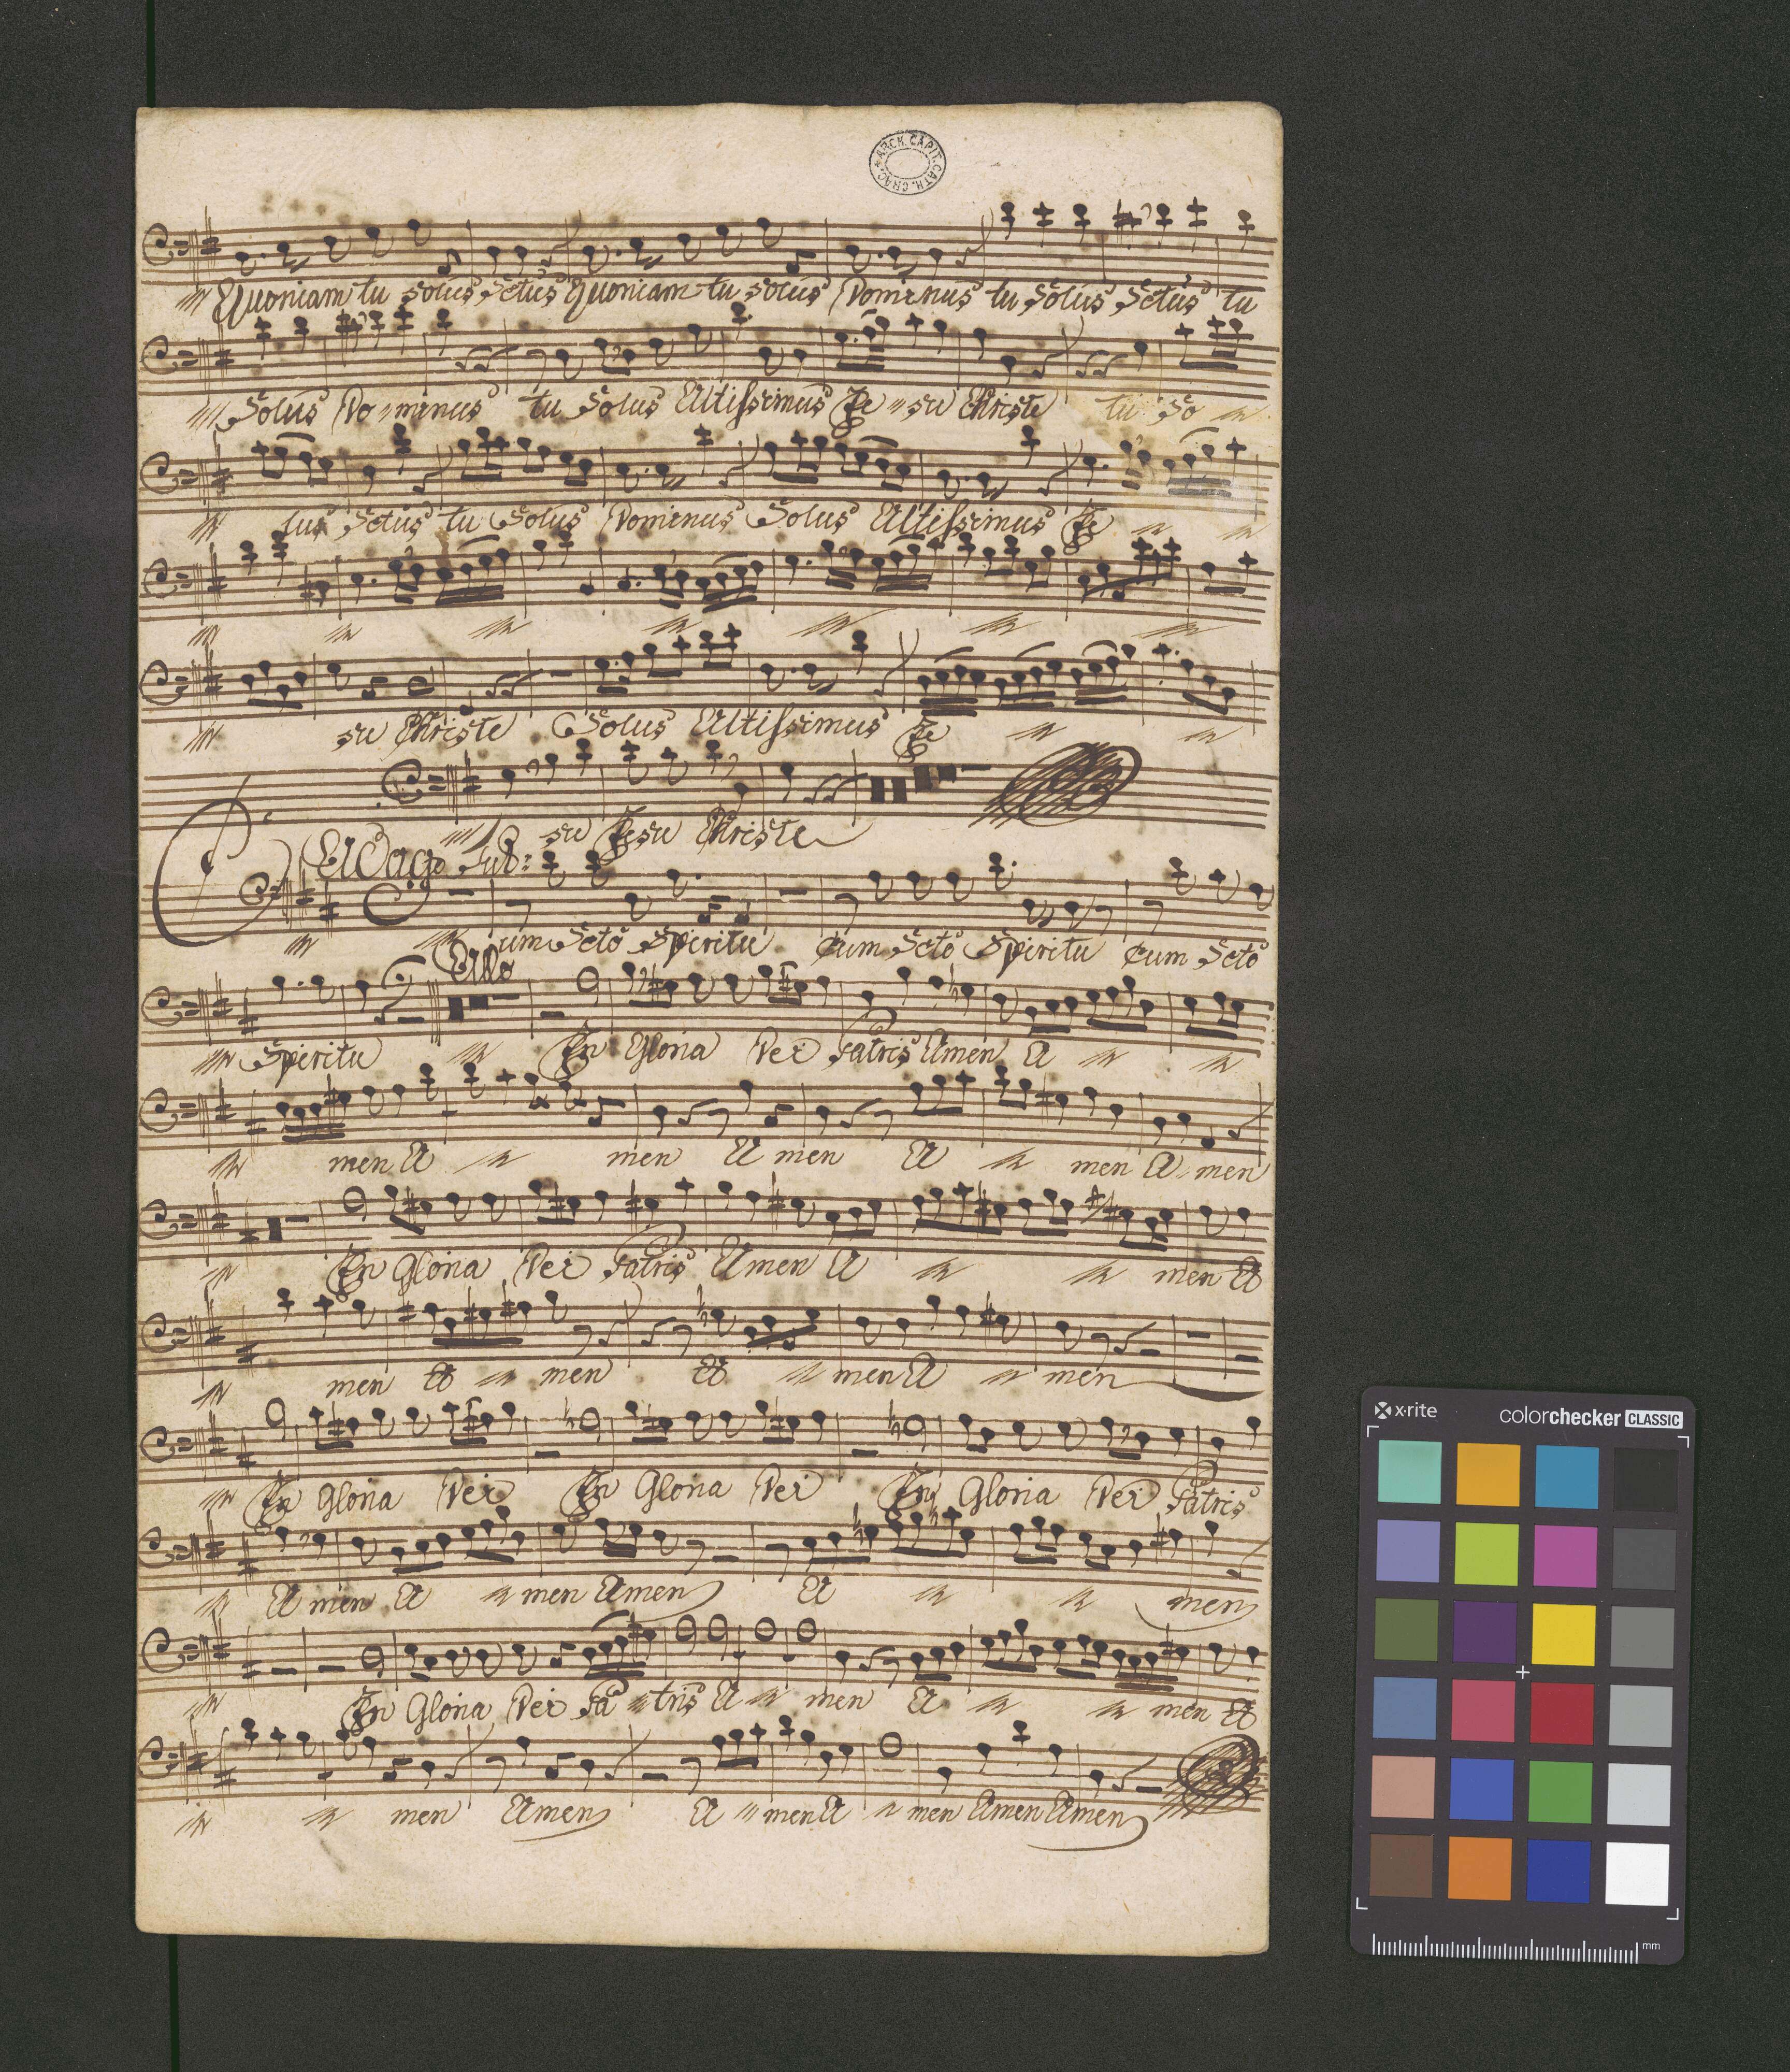 ARCH. CAPIT. CATH. CRAC.
Quoniam tu solus Sctus Quoniam tu solus Dominus tu Solus Sctus tu
Solus Do minus tu Solus Altissimus Je su Christe tu So
lus Sctus tu Solus Dominus Solus Altissimus Je
su Christe Solus Altissimus Je
su Jesu Christe
Adago
Cum Scto Spiritu Cum Scto Spiritu Cum Scto
Allo
Spiritu In Gloria Dei Patris Amen A
men A men A men A men A men
In Gloria Dei Patris Amen A men A
men A men A men A men
In Gloria Dei In Gloria Dei In Gloria Dei Patris
A men A men Amen A men
In Gloria Dei Pa tris A men A men A
men Amen A men A men Amen Amen
x·rite
colorchecker CLASSIC
mm